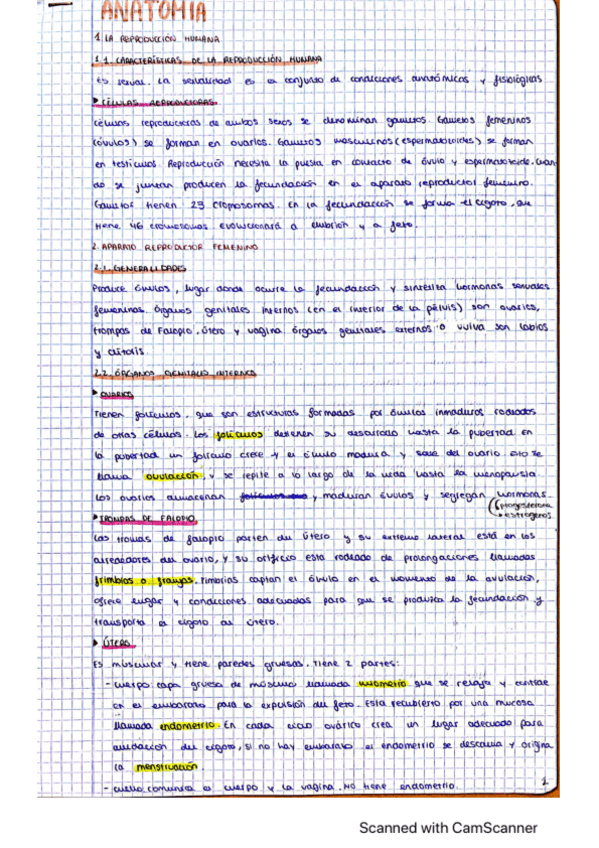 ANATOMIA
1. LA REPRODUCCIÓN HUMANA
1.1. CARACTERÍSTICAS DE LA REPRODUCCIÓN HUMANA
Es sexual. La sexualidad es el conjunto de condiciones anatómicas y fisiológicas
CÉLULAS REPRODUCTORAS
Células reproductoras de ambos sexos se denominan gametos. Gametos femeninos
(óvulos) se forman en ovarios. Gametos masculinos (espermatozoides) se forman
en testículos. Reproducción necesita la puesta en contacto de óvulo y espermatozoide. Cuan
do se juntan producen la fecundación en el aparato reproductor femenino.
Gametos tienen 23 cromosomas. En la fecundación se forma el cigoto, que
tiene 46 cromosomas evolucionará a embrión y a feto.
2. APARATO REPRODUCTOR FEMENINO
2.1. GENERALIDADES
Produce óvulos, lugar donde ocurre la fecundación y sintetiza hormonas sexuales
femeninas. Órganos genitales internos (en el interior de la pelvis) son ovarios,
trompas de Falopio, útero y vagina. Órganos genitales externos o vulva son labios
y clítoris.
2.2. ÓRGANOS GENITALES INTERNOS
OVARIOS
Tienen folículos, que son estructuras formadas por óvulos inmaduros rodeados
de otras células. Los folículos detienen su desarrollo hasta la pubertad en
la pubertad un folículo crece y el óvulo madura y sale del ovario. Esto se
llama ovulación, y se repite a lo largo de la vida hasta la menopausia.
Los ovarios almacenan y maduran óvulos y segregan hormonas.
progesterona
estrógenos
TROMPAS DE FALOPIO
Las trompas de falopio parten del útero y su extremo lateral está en los
alrededores del ovario, y su orificio está rodeado de prolongaciones llamadas
fimbrias o franjas. Fimbrias captan el óvulo en el momento de la ovulación,
ofrece lugar y condiciones adecuadas para que se produzca la fecundación y
transporta el cigoto al útero.
ÚTERO
Es muscular y tiene paredes gruesas. Tiene 2 partes:
- cuerpo: capa gruesa de músculo llamada miometrio que se relaja y contrae
en el embarazo para la expulsión del feto. Esta recubierto por una mucosa
llamada endometrio. En cada ciclo ovárico crea un lugar adecuado para
anidación del cigoto, si no hay embarazo el endometrio se descama y origina
la menstruación
- cuello: comunica el cuerpo y la vagina. No tiene endometrio.
1
Scanned with CamScanner